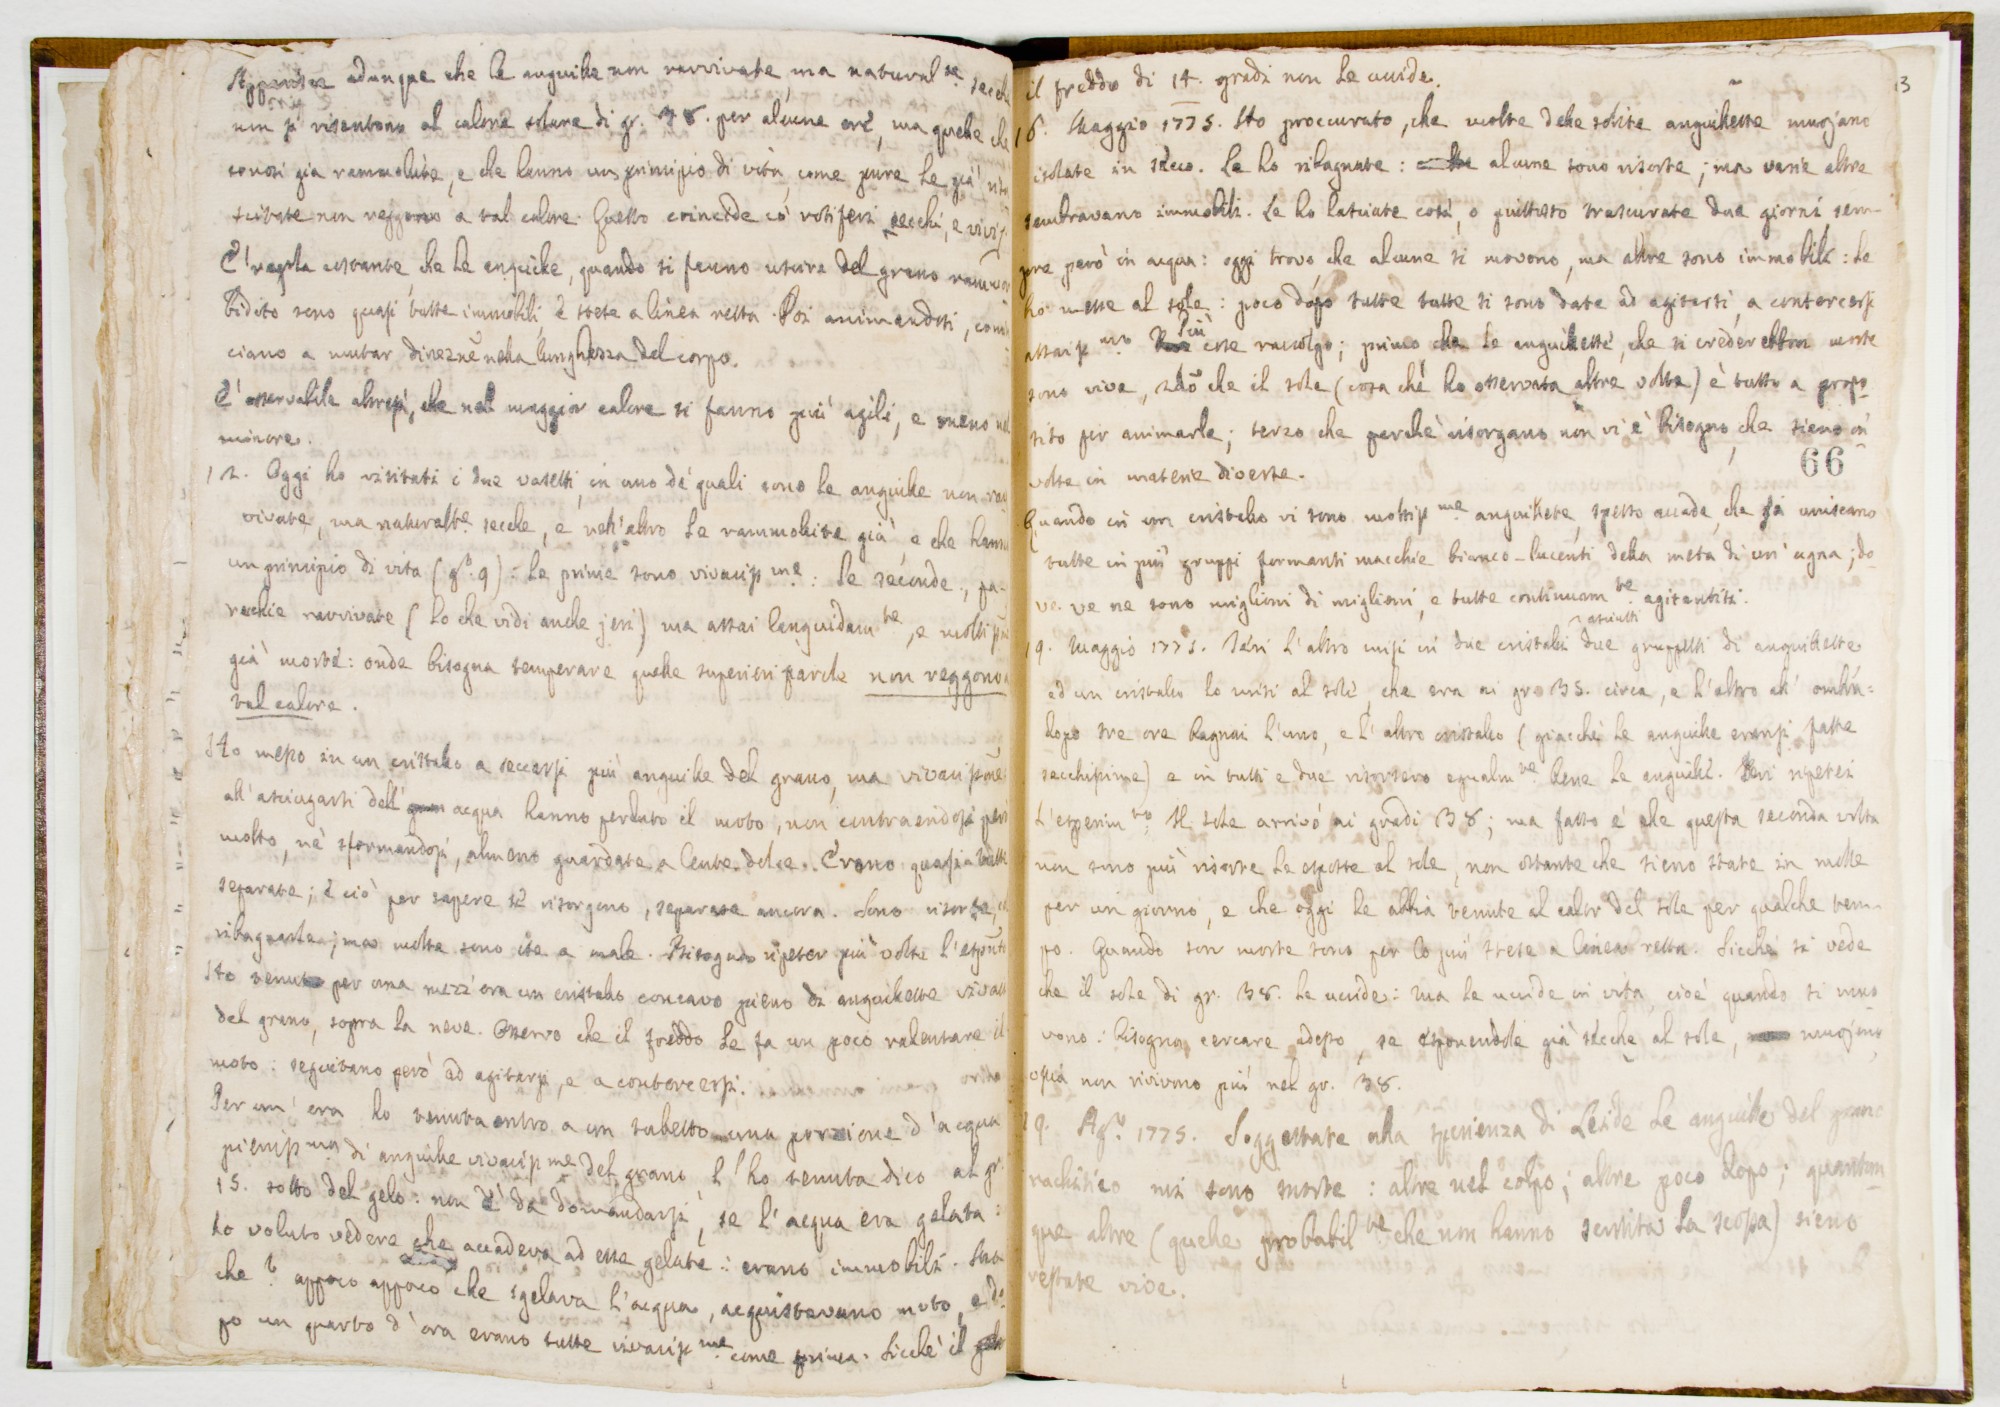 Apparisce adunque che le anguille non ravvivate, ma natural.te secche
non si risentono al calore solare di gr. 38. per alcune ore, ma quelle che
sonosi già rammollite, e che hanno un principio di vita, come pure le già
scitate non reggono a tal calore. Questo coincide co' rotiferi secchi, e vivi
È regola costante, che le anguille, quando si fanno uscire del grano rammor
bidito sono quasi tutte immobili, e stese a linea retta. Poi animandosi, comin
ciano a mutar direzne nella lunghezza del corpo.
È osservabile altresì, che nel maggior calore si fanno più agili, e meno nel
minore.
12. Oggi ho visitati i due vaselli, in uno de' quali sono le anguille non rav
vivate, ma naturalte secche, e nell'altro le rammollite già, e che hanno
un principio di vita (gº. 9): le prime sono vivacissme: le seconde, pa-
recchie ravvivate (lo che vidi anche jeri) ma assai languidamte, e
già morte: onde bisogna temperare quelle superiori parole non reggono a
tal calore.
Ho messo in un cristallo a seccarsi più anguille del grano, ma vivacissme
all'asciugarsi dell' acqua hanno perduto il moto, non contraendosi però
molto, nè sformandosi, almeno guardate a lente dolce. Erano quasi tutte
separate; e ciò per sapere se risorgono, separate ancora. Sono risorte,
ribagnate; ma molte sono ite a male. Bisogna ripeter più volte l'espmto
Ho tenuto per una mezz'ora un cristallo concavo pieno di anguillette vivaci
del grano, sopra la neve. Osservo che il freddo le fa un poco ralentare il
moto: seguitano però ad agitarsi, e a contorcersi.
Per un'ora ho tenuta entro a un tubetto una porzione d'acqua
pienissma di anguille vivacissme del grano. L'ho tenuta dico al gr.
15. sotto del gelo: non è da domandarsi, se l'acqua era gelata:
ho voluto vedere che accadeva ad esse gelate: erano immobili.
che? appoco appoco che sgelava l'acqua, acquistavano moto, e do
po un quarto d'ora erano tutte vivacissme come prima. Sicchè il
3
il freddo di 14. gradi non le uccide.
16. Maggio 1775. Ho proccurato, che molte delle solite anguillette muojano
isolate in secco. Le ho ribagnate: alcune sono risorte; ma varie altre
sembravano immobili. Le ho lasciate così, o piuttosto trascurate due giorni sem-
pre però in acqua: oggi trovo, che alcune si movono, ma altre sono immobili: le
ho messe al sole: poco dopo tutte tutte si sono date ad agitarsi, a contorcersi
assaissmo. Più cose raccolgo; primo che le anguillette, che si crederebbon morte
sono vive, 2do che il sole (cosa che ho osservata altre volte) è tutto a propo-
sito per animarle; terzo che perchè risorgano non vi è bisogno, che sieno in
volte in materie diverse.
66
Quando in un cristallo vi sono moltissme anguillette, spesso accade, che si uniscano
tutte in più gruppi formanti macchie bianco-lucenti della metà di un'ugna; do
ve ve ne sono miglioni di miglioni, e tutte continuamte agitantisi.
19. Maggio 1775. Jeri l'altro misi in due cristalli due gruppetti asciutti di anguillette
ed un cristallo lo misi al sole, che era ai gr. 35. circa, e l'altro all'ombra:
dopo tre ore bagnai l'uno, e l'altro cristallo (giacchè le anguille eransi fatte
secchissime) e in tutti e due risorsero egualmte bene le anguille. Jeri ripetei
l'esperimto. Il sole arrivò ai gradi 38; ma fatto è che questa seconda volta
non sono più risorte le esposte al sole, non ostante che sieno state in molle
per un giorno, e che oggi le abbia tenute al calor del sole per qualche tem-
po. Quando son morte sono per lo più stese a linea retta. Sicchè si vede
che il sole di gr. 38. le uccide: ma le uccide in vita, cioè quando si muo
vono: bisogna cercare adesso, se esponendole già secche al sole, muojono
ossia non rivivono più nel gr. 38.
19. Agº. 1775. Soggettate alla sperienza di Leide le anguille del grano
rachitico mi sono morte: altre nel colpo; altre poco dopo; quantun
que altre (quelle probabilte che non hanno sentita la scossa) sieno
restate vive.